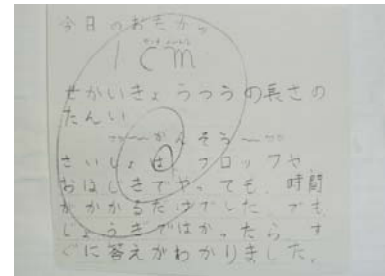 今日のおもかっ
1cm
せかいきょうつうの長さの
たんい
〜〜かんそう〜〜
さいしょは、ブロックや
おはじきでやっても、時間
がかかるだけでした。でも、
じょうぎではかったら、す
ぐに答えがわかりました。